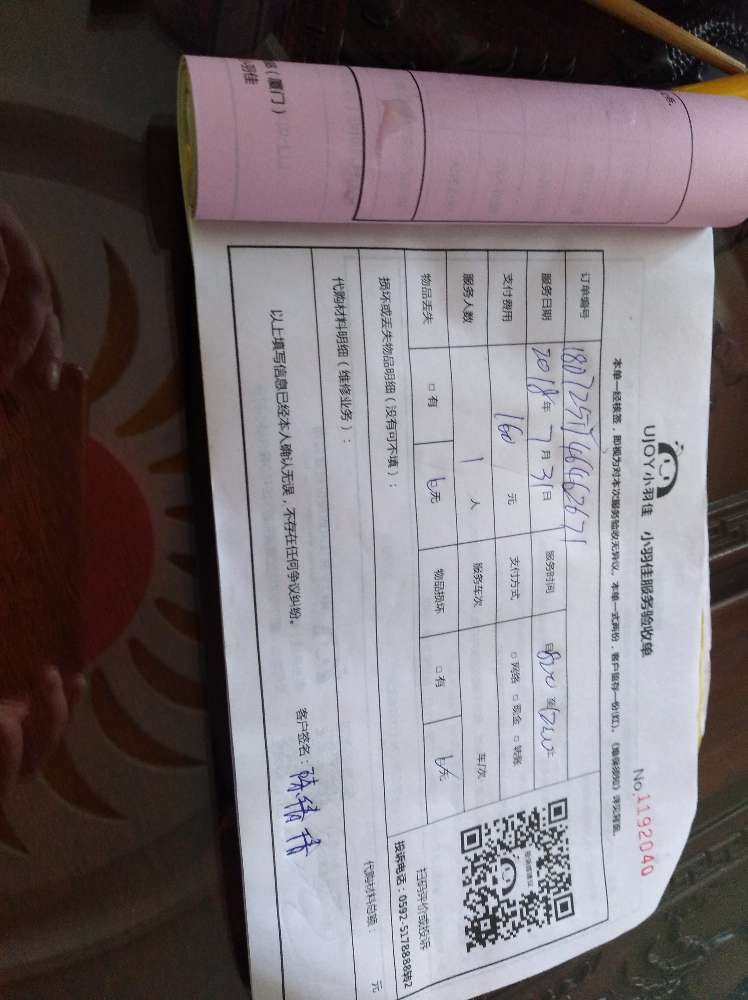 部（厦门）
小羽佳
UJOY小羽佳 小羽佳服务验收单
No.1192040
本单一经核签，即视为对本次服务验收无异议。本单一式两份，客户留存一份(红)。
订单编号
服务日期 2018年 7月 31日 服务时间
支付费用 160 元 支付方式 □ 网络 □ 现金 □ 转账
服务人数 1 人 服务车次 车/次
物品丢失 □ 有 无 物品损坏 □ 有 无
扫码评价或投诉
投诉电话：0592-5178888转2
损坏或丢失物品明细（没有可不填）：
代购材料明细（维修业务）：
代购材料总额： 元
以上填写信息已经本人确认无误，不存在任何争议纠纷。
客户签名：